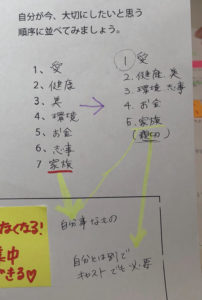 自分が今、大切にしたいと思う
順序に並べてみましょう。
1、愛
2、健康
3、美
4、環境
5、お金
6、志事
7 家族
1 愛
2. 健康、美
3. 環境 志事
4. お金
5. 家族
(親切)
自分事なもの
自分とは別で
でも必要
なくなる!
集中
できる♡